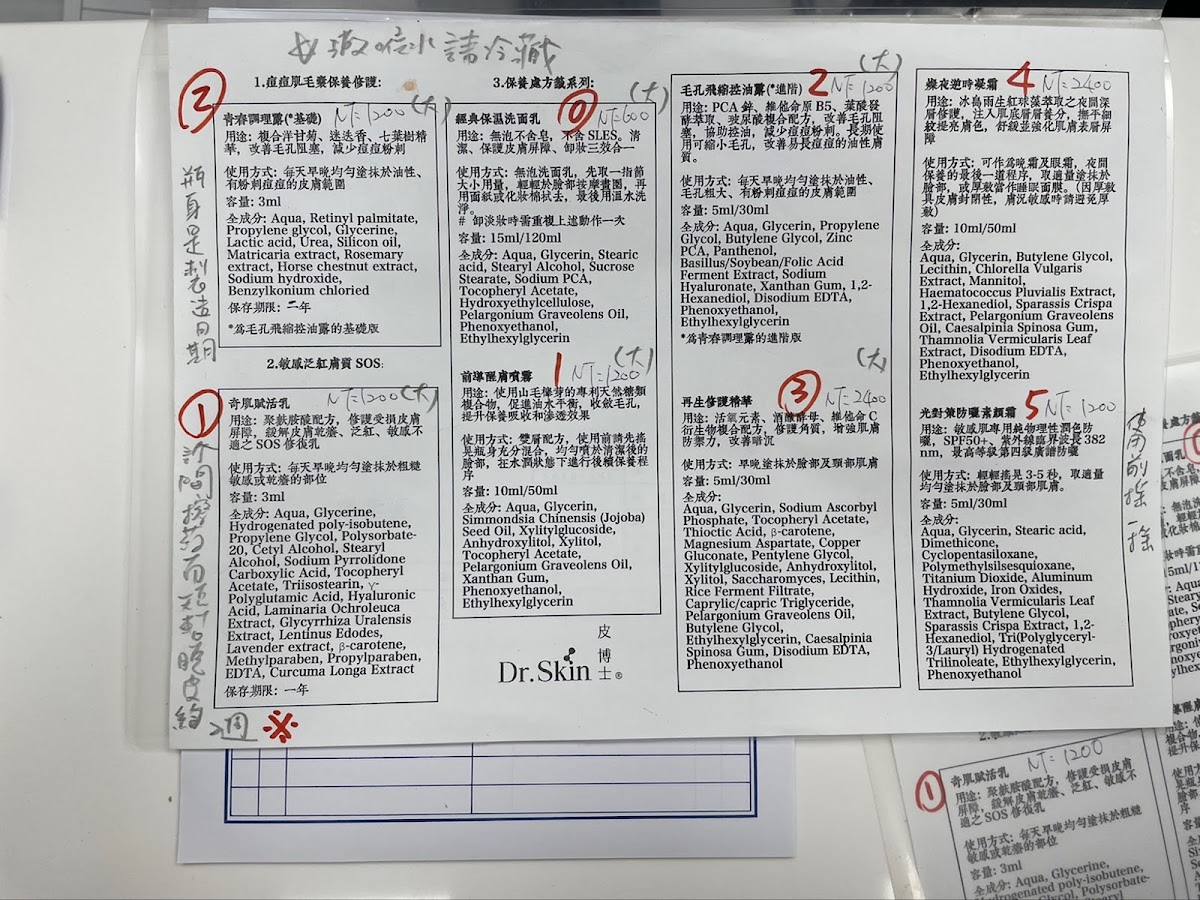 請冷藏
②
1.痘痘肌毛囊保養修護:
NT=1200(大)
青春調理露(*基礎)
用途: 複合洋甘菊、迷迭香、七葉樹精
華, 改善毛孔阻塞, 減少痘痘粉刺
使用方式: 每天早晚均勻塗抹於油性、
有粉刺痘痘的皮膚範圍
容量: 3ml
全成分: Aqua, Retinyl palmitate,
Propylene glycol, Glycerine,
Lactic acid, Urea, Silicon oil,
Matricaria extract, Rosemary
extract, Horse chestnut extract,
Sodium hydroxide,
Benzylkonium chloried
保存期限: 二年
*為毛孔飛縮控油露的基礎版
瓶身是製造日期
2.敏感泛紅膚質 SOS:
①
NT=1200(大)
奇肌賦活乳
用途: 聚麩胺酸配方, 修護受損皮膚
屏障, 緩解皮膚乾癢、泛紅、敏感不
適之 SOS 修復乳
使用方式: 每天早晚均勻塗抹於粗糙
敏感或乾癢的部位
容量: 3ml
全成分: Aqua, Glycerine,
Hydrogenated poly-isobutene,
Propylene Glycol, Polysorbate-
20, Cetyl Alcohol, Stearyl
Alcohol, Sodium Pyrrolidone
Carboxylic Acid, Tocopheryl
Acetate, Triisostearin, γ-
Polyglutamic Acid, Hyaluronic
Acid, Laminaria Ochroleuca
Extract, Glycyrrhiza Uralensis
Extract, Lentinus Edodes,
Lavender extract, β-carotene,
Methylparaben, Propylparaben,
EDTA, Curcuma Longa Extract
保存期限: 一年
※
3.保養處方籤系列:
(大)
⓪
NT=600
經典保濕洗面乳
用途: 無泡不含皂, 不含 SLES。清
潔、保護皮膚屏障、卸妝三效合一
使用方式: 無泡洗面乳, 先取一指節
大小用量, 輕輕於臉部按摩畫圈, 再
用面紙或化妝棉拭去, 最後用溫水洗
淨。
# 卸淡妝時需重複上述動作一次
容量: 15ml/120ml
全成分: Aqua, Glycerin, Stearic
acid, Stearyl Alcohol, Sucrose
Stearate, Sodium PCA,
Tocopheryl Acetate,
Hydroxyethylcellulose,
Pelargonium Graveolens Oil,
Phenoxyethanol,
Ethylhexylglycerin
1
NT=1200
(大)
前導醒膚噴霧
用途: 使用山毛櫸芽的專利天然糖類
複合物, 促進油水平衡, 收斂毛孔,
提升保養吸收和滲透效果
使用方式: 雙層配方, 使用前請先搖
晃瓶身充分混合, 均勻噴於清潔後的
臉部, 在水潤狀態下進行後續保養程
序
容量: 10ml/50ml
全成分: Aqua, Glycerin,
Simmondsia Chinensis (Jojoba)
Seed Oil, Xylitylglucoside,
Anhydroxylitol, Xylitol,
Tocopheryl Acetate,
Pelargonium Graveolens Oil,
Xanthan Gum,
Phenoxyethanol,
Ethylhexylglycerin
Dr.Skin 皮博士®
(大)
2
NT=1200
毛孔飛縮控油露(*進階)
用途: PCA 鋅、維他命原 B5、葉酸發
酵萃取、玻尿酸複合配方, 改善毛孔阻
塞, 協助控油, 減少痘痘粉刺。長期使
用可縮小毛孔, 改善易長痘痘的油性膚
質。
使用方式: 每天早晚均勻塗抹於油性、
毛孔粗大、有粉刺痘痘的皮膚範圍
容量: 5ml/30ml
全成分: Aqua, Glycerin, Propylene
Glycol, Butylene Glycol, Zinc
PCA, Panthenol,
Basillus/Soybean/Folic Acid
Ferment Extract, Sodium
Hyaluronate, Xanthan Gum, 1,2-
Hexanediol, Disodium EDTA,
Phenoxyethanol,
Ethylhexylglycerin
*為青春調理露的進階版
(大)
③
NT=2400
再生修護精華
用途: 活氧元素、酒釀酵母、維他命 C
衍生物複合配方, 修護角質, 增強肌膚
防禦力, 改善暗沉
使用方式: 早晚塗抹於臉部及頸部肌膚
容量: 5ml/30ml
全成分:
Aqua, Glycerin, Sodium Ascorbyl
Phosphate, Tocopheryl Acetate,
Thioctic Acid, β-carotene,
Magnesium Aspartate, Copper
Gluconate, Pentylene Glycol,
Xylitylglucoside, Anhydroxylitol,
Xylitol, Saccharomyces, Lecithin,
Rice Ferment Filtrate,
Caprylic/capric Triglyceride,
Pelargonium Graveolens Oil,
Butylene Glycol,
Ethylhexylglycerin, Caesalpinia
Spinosa Gum, Disodium EDTA,
Phenoxyethanol
4
NT=2400
燦夜逆時凝霜
用途: 冰島雨生紅球藻萃取之夜間深
層修護, 注入肌底層層養分, 撫平細
紋提亮膚色, 舒緩並強化肌膚表層屏
障
使用方式: 可作為晚霜及眼霜, 夜間
保養的最後一道程序, 取適量塗抹於
臉部, 或厚敷當作睡眠面膜。(因厚敷
具皮膚封閉性, 膚況敏感時請避免厚
敷)
容量: 10ml/50ml
全成分:
Aqua, Glycerin, Butylene Glycol,
Lecithin, Chlorella Vulgaris
Extract, Mannitol,
Haematococcus Pluvialis Extract,
1,2-Hexanediol, Sparassis Crispa
Extract, Pelargonium Graveolens
Oil, Caesalpinia Spinosa Gum,
Thamnolia Vermicularis Leaf
Extract, Disodium EDTA,
Phenoxyethanol,
Ethylhexylglycerin
5
NT=1200
光對策防曬素顏霜
用途: 敏感肌專用純物理性潤色防
曬, SPF50+、紫外線臨界波長 382
nm, 最高等級第四級廣譜防曬
使用方式: 輕輕搖晃 3-5 秒, 取適量
均勻塗抹於臉部及頸部肌膚。
容量: 5ml/30ml
全成分:
Aqua, Glycerin, Stearic acid,
Dimethicone,
Cyclopentasiloxane,
Polymethylsilsesquioxane,
Titanium Dioxide, Aluminum
Hydroxide, Iron Oxides,
Thamnolia Vermicularis Leaf
Extract, Butylene Glycol,
Sparassis Crispa Extract, 1,2-
Hexanediol, Tri(Polyglyceryl-
3/Lauryl) Hydrogenated
Trilinoleate, Ethylhexylglycerin,
Phenoxyethanol
使用前搖一搖
①
NT=1200
奇肌賦活乳
用途: 聚麩胺酸配方, 修護受損皮膚
屏障, 緩解皮膚乾癢、泛紅、敏感不
適之 SOS 修復乳
使用方式: 每天早晚均勻塗抹於粗糙
敏感或乾癢的部位
容量: 3ml
全成分: Aqua, Glycerine,
Hydrogenated poly-isobutene,